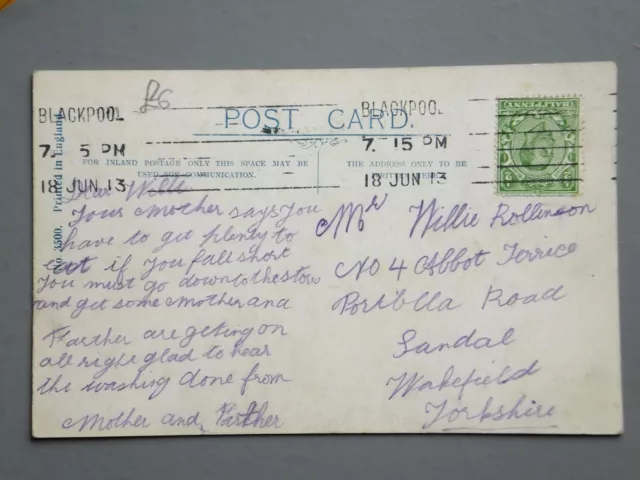 £6
BLACKPOOL
7. 5 PM
18 JUN 13
BLACKPOOL
7. 15 PM
18 JUN 13
HALFPENNY
POST CARD.
FOR INLAND POSTAGE ONLY THIS SPACE MAY BE
USED FOR COMMUNICATION.
THE ADDRESS ONLY TO BE
WRITTEN HERE.
No. 3500. Printed in England
Dear Willie
Your Mother says you
have to get plenty to
eat if you fall short
you must go down to the stores
and get some Mother and
Farther are geting on
all right glad to hear
the washing done from
Mother and Farther
Mr Willie Rollinson
NO 4 Abbot Terrice
Portobella Road
Sandal
Wakefield
Yorkshire